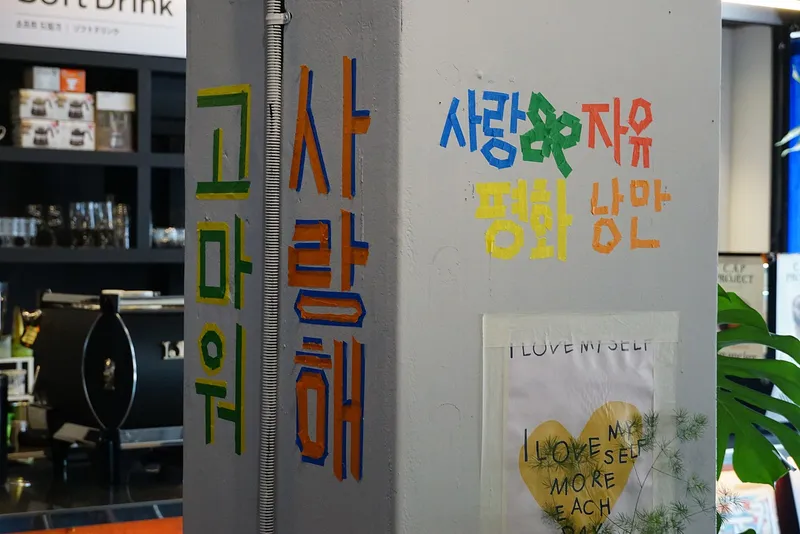 Soft Drink
소프트 드링크 | ソフトドリンク
고마워
사랑해
사랑 자유
평화 낭만
I LOVE MYSELF
I LOVE MYSELF
MORE
EACH
DAY
C.A.P
PROJECT